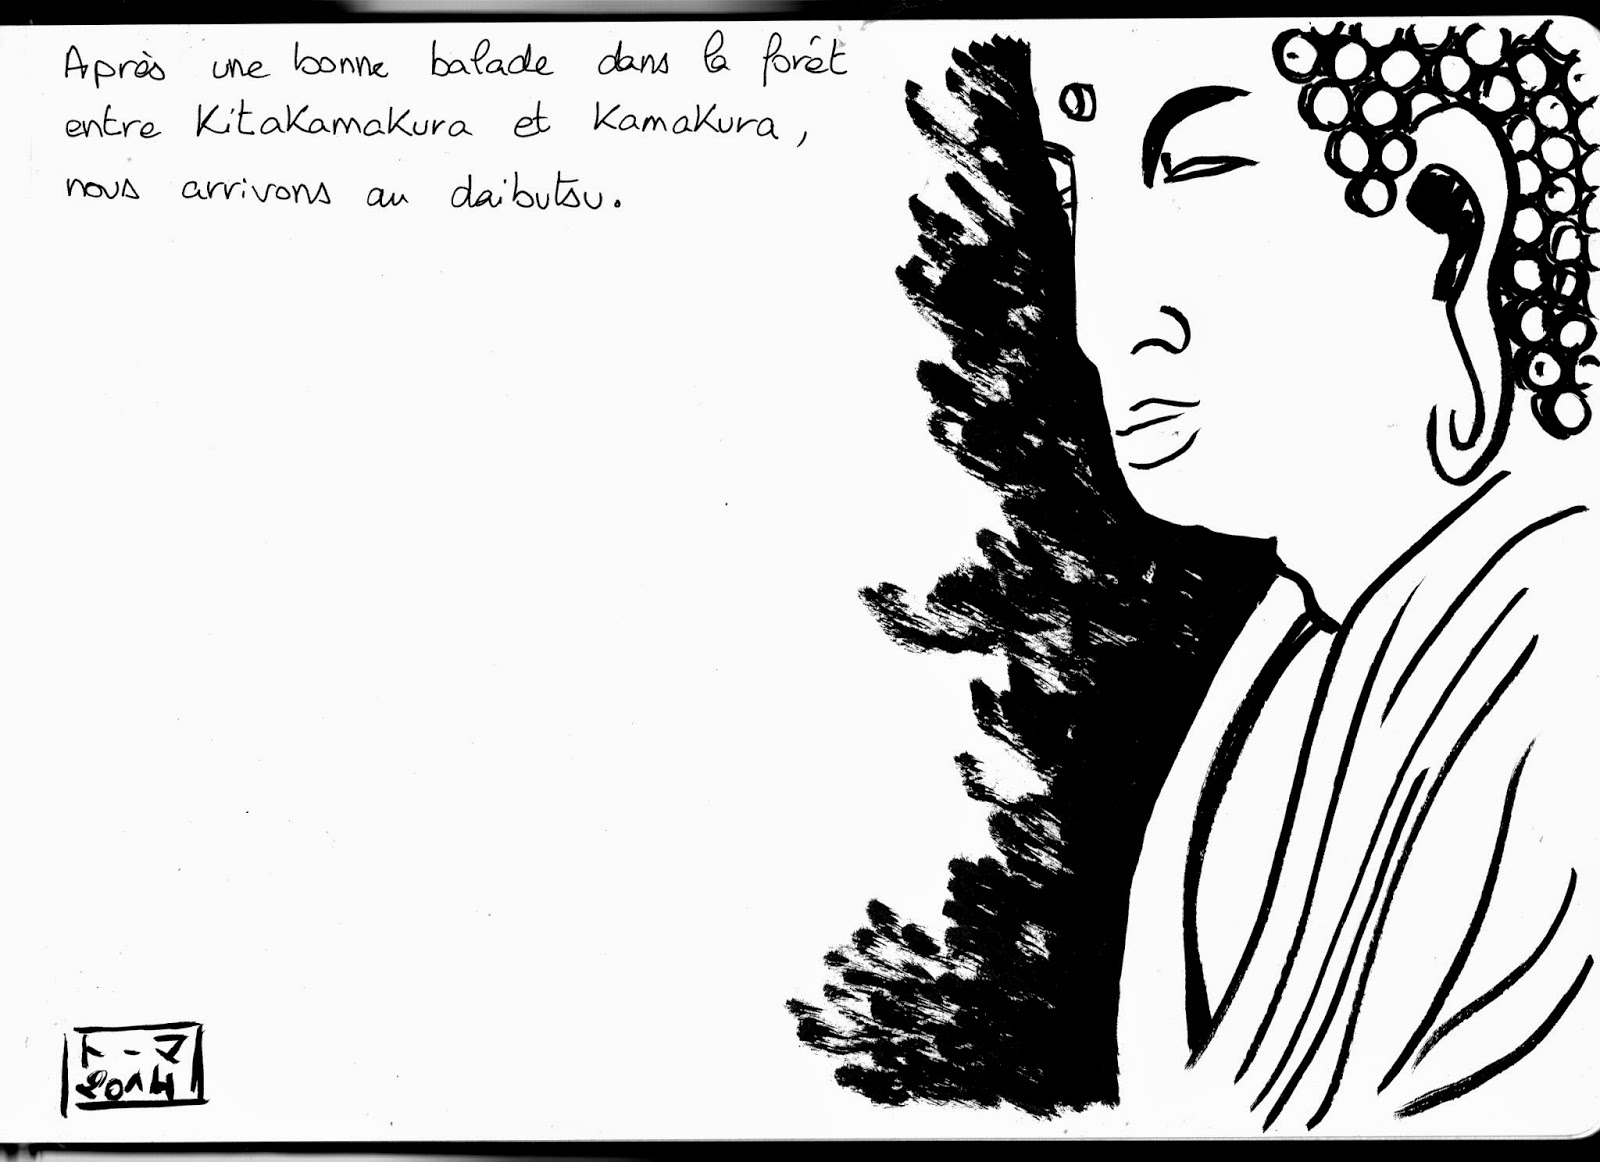 Après une bonne balade dans la forêt
entre Kitakamakura et Kamakura,
nous arrivons au daibutsu.
トーマ
2014